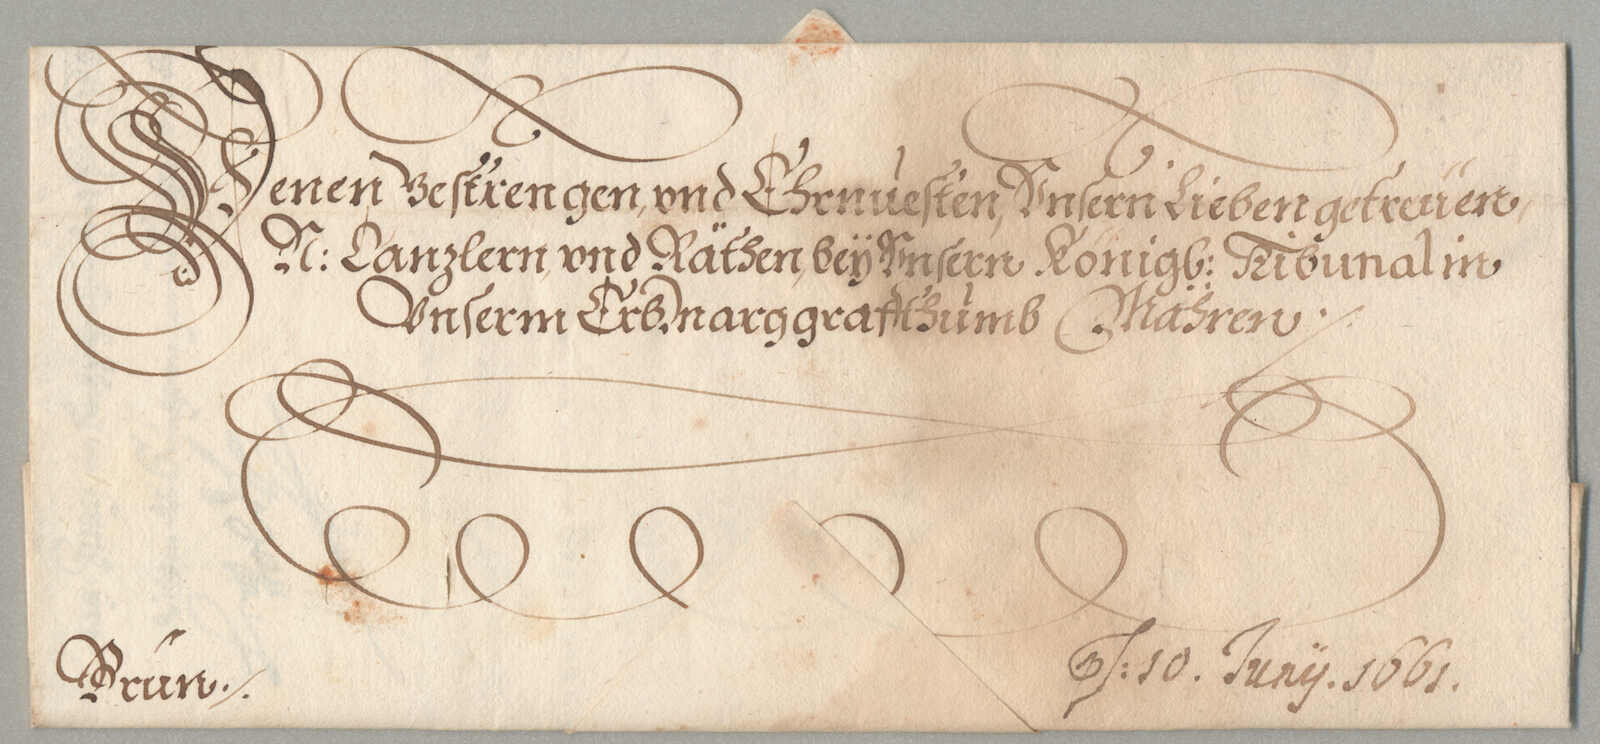 Denen Gestrengen, vnd Ehrnuesten, Vnsern Lieben getreüen,
N: Canzlern, vnd Räthen, beÿ Vnsern Königl: Tribunal in
Vnserm Erb Marggrafthumb Mähren ./.
Brün ./.
ps: 10. Junÿ. 1661.